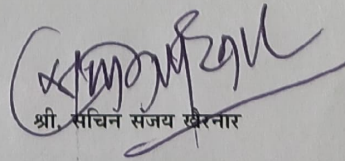 श्री. सचिन संजय खैरनार